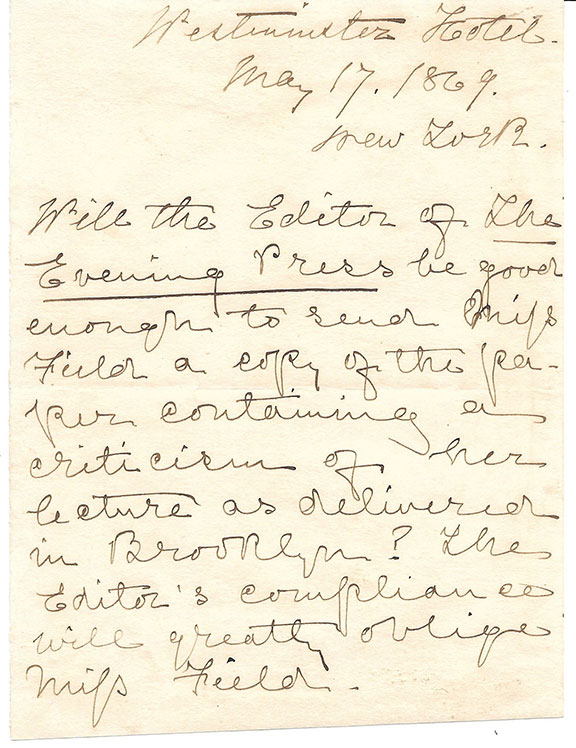 Westminster Hotel.
May 17. 1869.
New York.
Will the Editor of The
Evening Press be good
enough to send Miss
Field a copy of the pa-
per containing a
criticism of her
lecture as delivered
in Brooklyn? The
Editor's compliance
will greatly oblige
Miss Field.